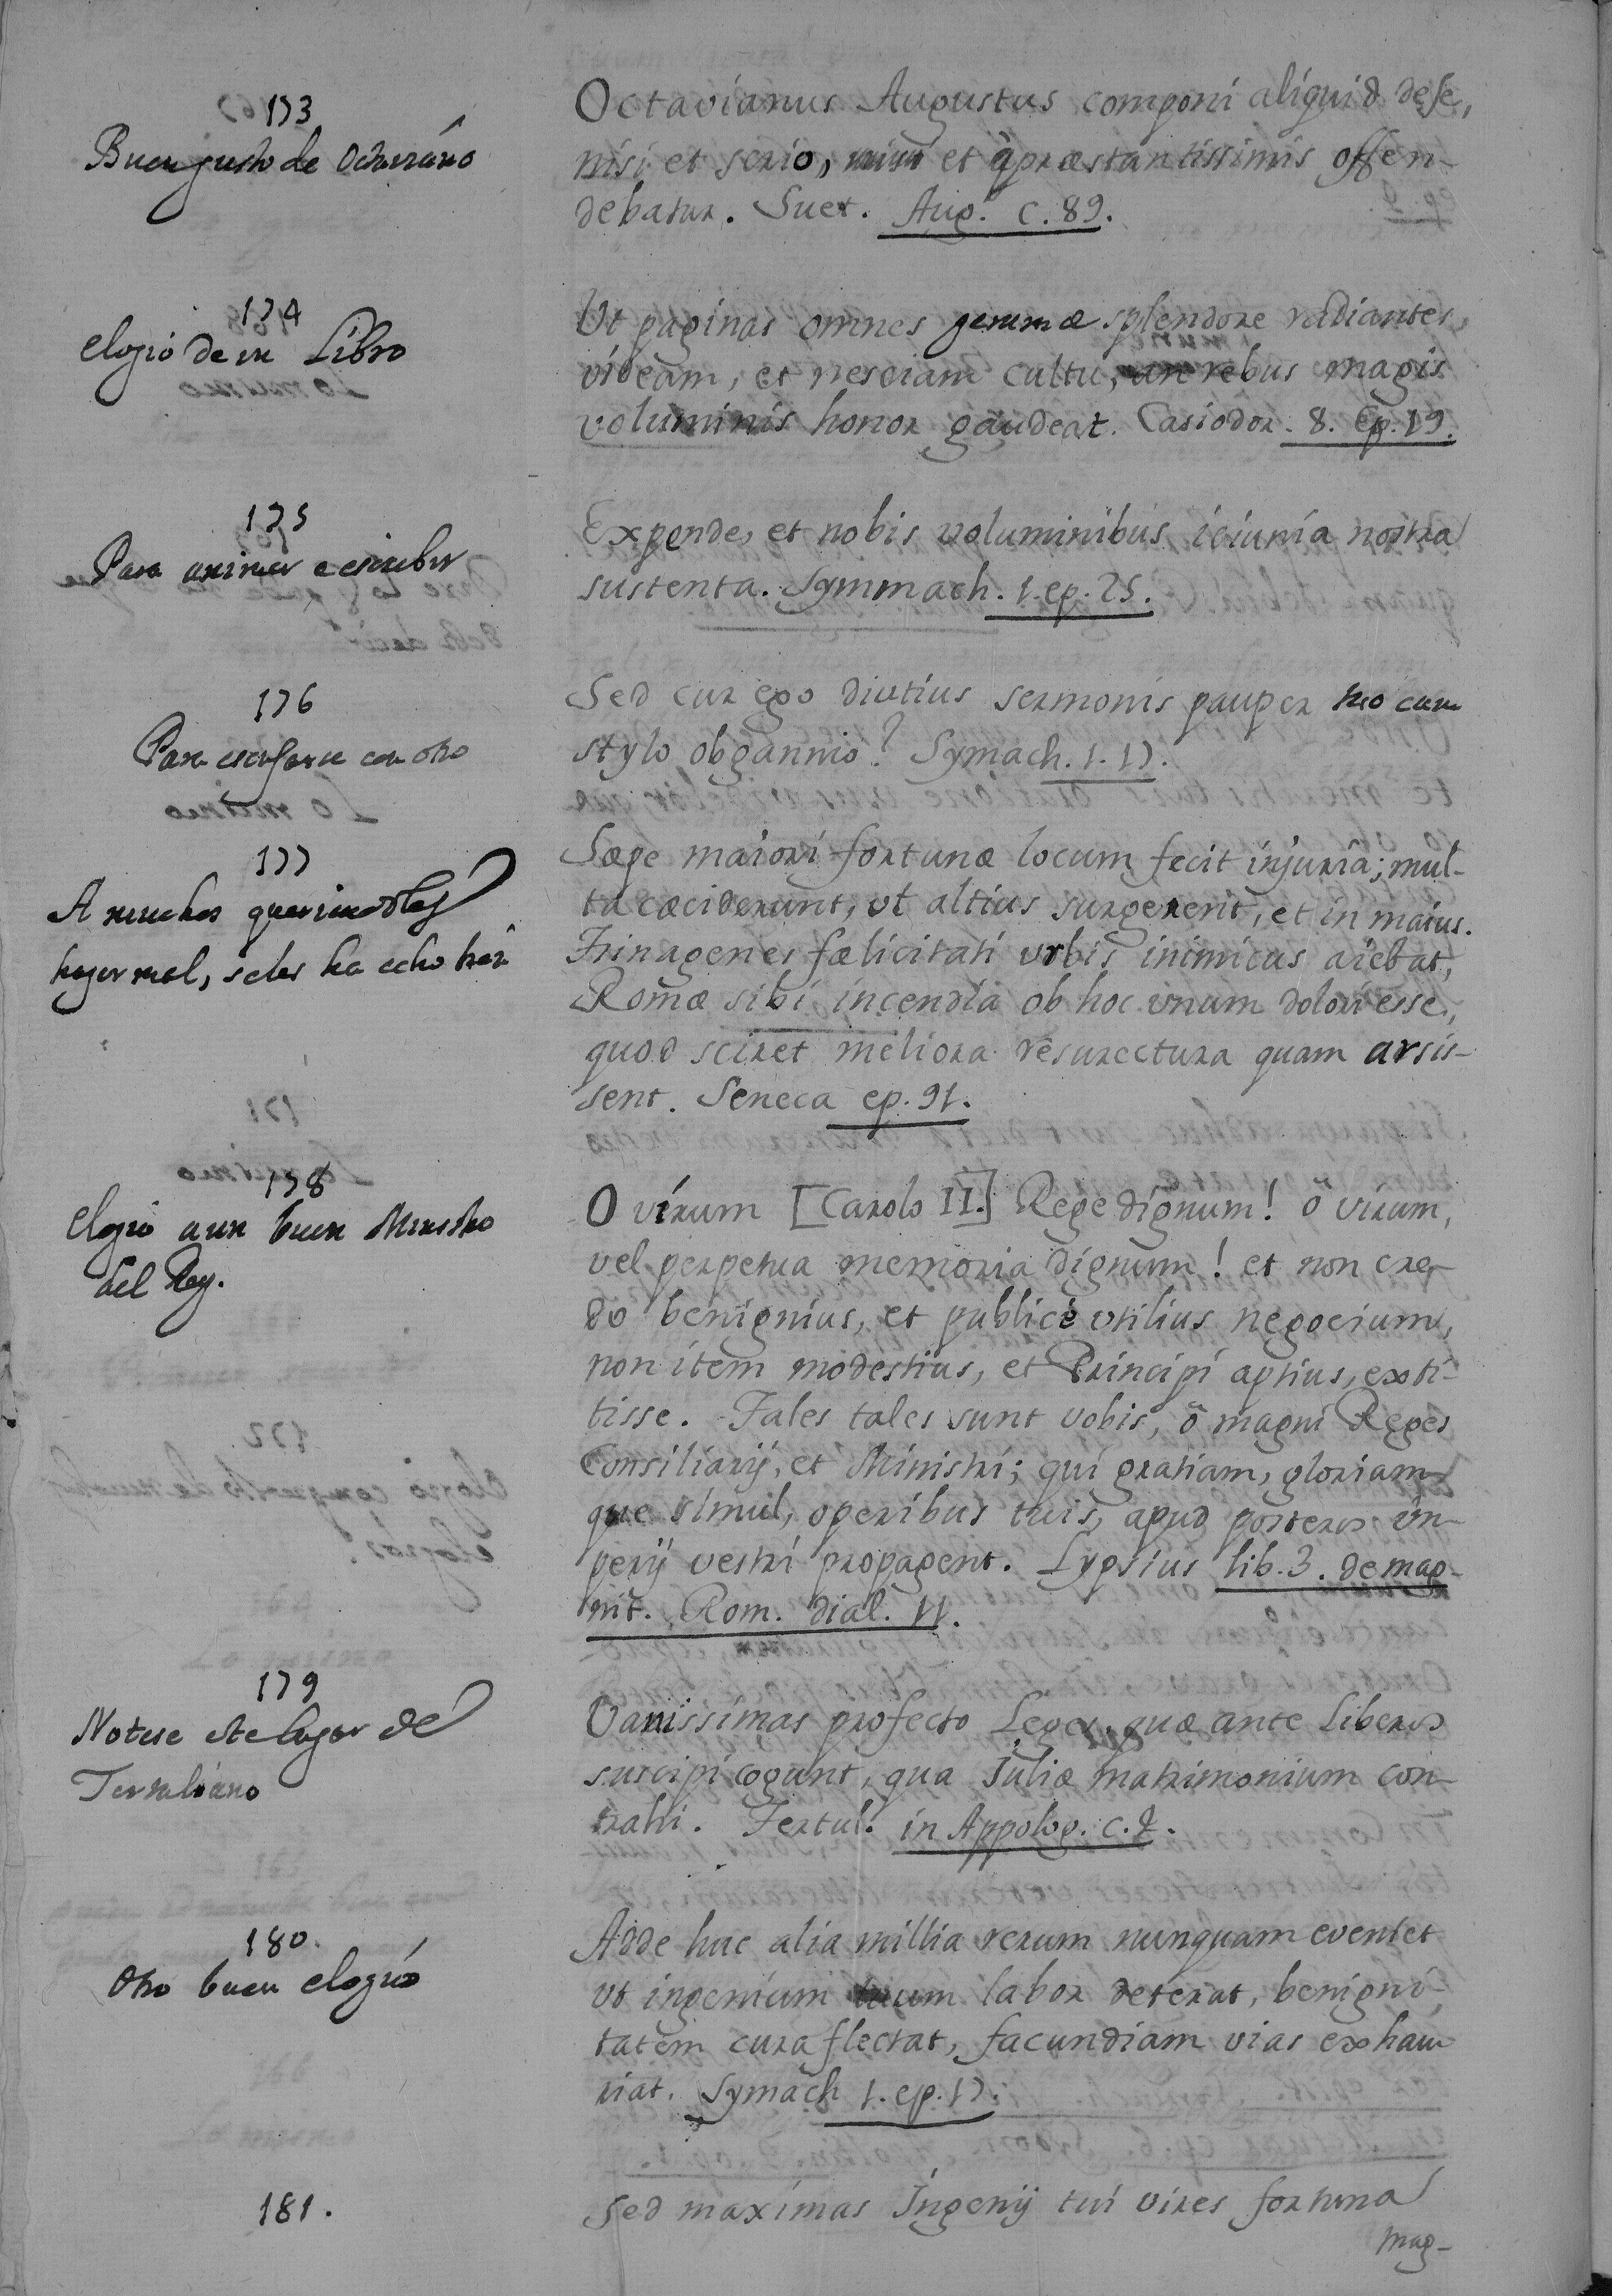 173
Buen gusto de Octaviano
Octavianus Augustus componi aliquid de se,
nisi et serio, nisi et à præstantissimis offen-
debatur. Suet. Aug. c. 89.
174
elogio de un Libro
Ut paginas omnes gemmæ splendore radiantes,
videam, et nesciam cultu, an rebus magis
voluminis honor gaudeat. Casiodor. 8. ep. 19.
175
Para animar a escribir
Expende, et nobis voluminibus ieiunia nostra
sustenta. Symmach. 1. ep. 25.
176
Para escusarse con otro
Sed cur ego diutius sermonis pauper tuo cum
stylo obgannio? Symach. 1. 17.
177
A muchos queriendoles
hazer mal, seles ha echo bien
Sæpe maiori fortunæ locum fecit injuria; mul-
ta cæciderunt, ut altius surgerent, et in maius.
Timagenes fælicitati urbis inimicus aiebat,
Romæ sibi incendia ob hoc unum dolori esse,
quod sciret meliora resurectura quam arsis-
sent. Seneca ep. 91.
178
elogio a un buen Ministro
del Rey.
O virum [Carolo II.] Rege dignum! ô virum,
vel perpetua memoria dignum! et non cre-
do benignius, et publicè utilius negocium,
non item modestius, et Principi aptius, exti-
tisse. Tales tales sunt vobis, ô magni Reges
Consiliarij, et Ministri; qui gratiam, gloriam-
que simul, operibus tuis, apud posteros im-
perij vestri propagent. Lypsius lib. 3. de mag-
nit. Rom. dial. 11.
179
Notese este lugar de
Tertuliano
Vanissimas profecto Leges, quæ ante Liberos
suscipi cogunt, qua Juliæ matrimonium con-
trahi. Tertul. in Appolog. c. 4.
180.
Otro buen elogio
Adde huc alia millia rerum nunquam eveniet
ut ingenium tuum labor deterat, benigni-
tatem cura flectat, facundiam vias exhau-
riat. Symach 1. ep. 17.
181.
Sed maximas Ingenij tui vires fortuna
mag-